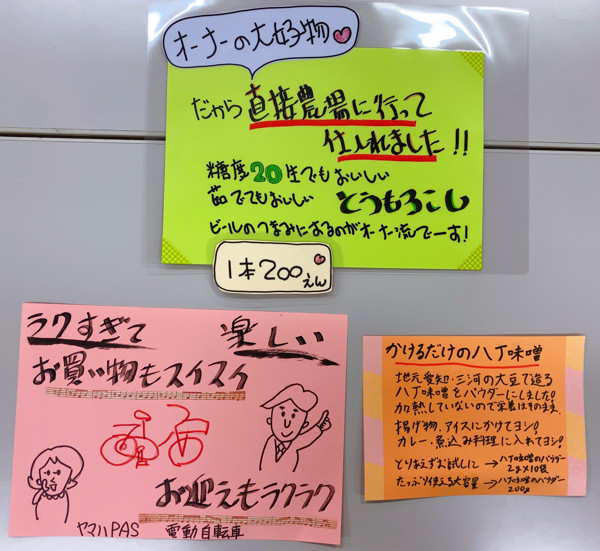 オーナーの大好物
だから直接農場に行って
仕入れました!!
糖度20生でもおいしい
茹ででもおいしい とうもろこし
ビールのつまみにするのがオーナー流でーす!
1本200えん
ラクすぎて 楽しい
お買い物もスイスイ
お迎えもラクラク
ヤマハPAS 電動自転車
かけるだけの八丁味噌
地元愛知・三河の大豆で造る
八丁味噌をパウダーにしました!
加熱していないので栄養はそのまま。
揚げ物、アイスにかけてヨシ!
カレー、煮込み料理に入れてヨシ!
とりあえずお試しに → 八丁味噌のパウダー
2g×10袋
たっぷり使える大容量 → 八丁味噌のパウダー
200g